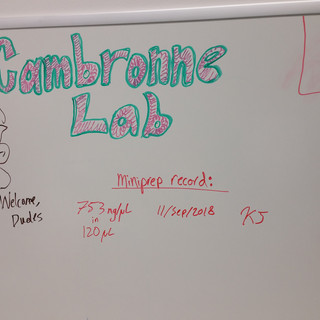 Cambronne
Lab
Miniprep record:
Welcome,
Dudes
753 ng/µL 11/Sep/2018 KJ
in
120 µL